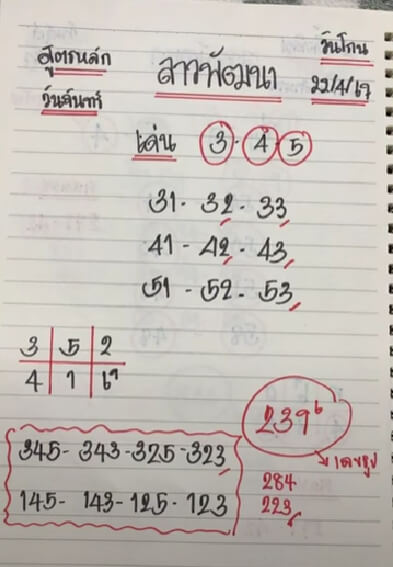 สูตรหลัก
วันจันทร์
ลาวพัฒนา
วันโกน
22/4/67
เด่น 3 · 4 · 5
31 - 32 - 33
41 - 42 - 43
51 - 52 - 53
3 5 2
4 1 6
239
345 - 343 - 325 - 323
145 - 143 - 125 - 123
เลขธูป
284
223